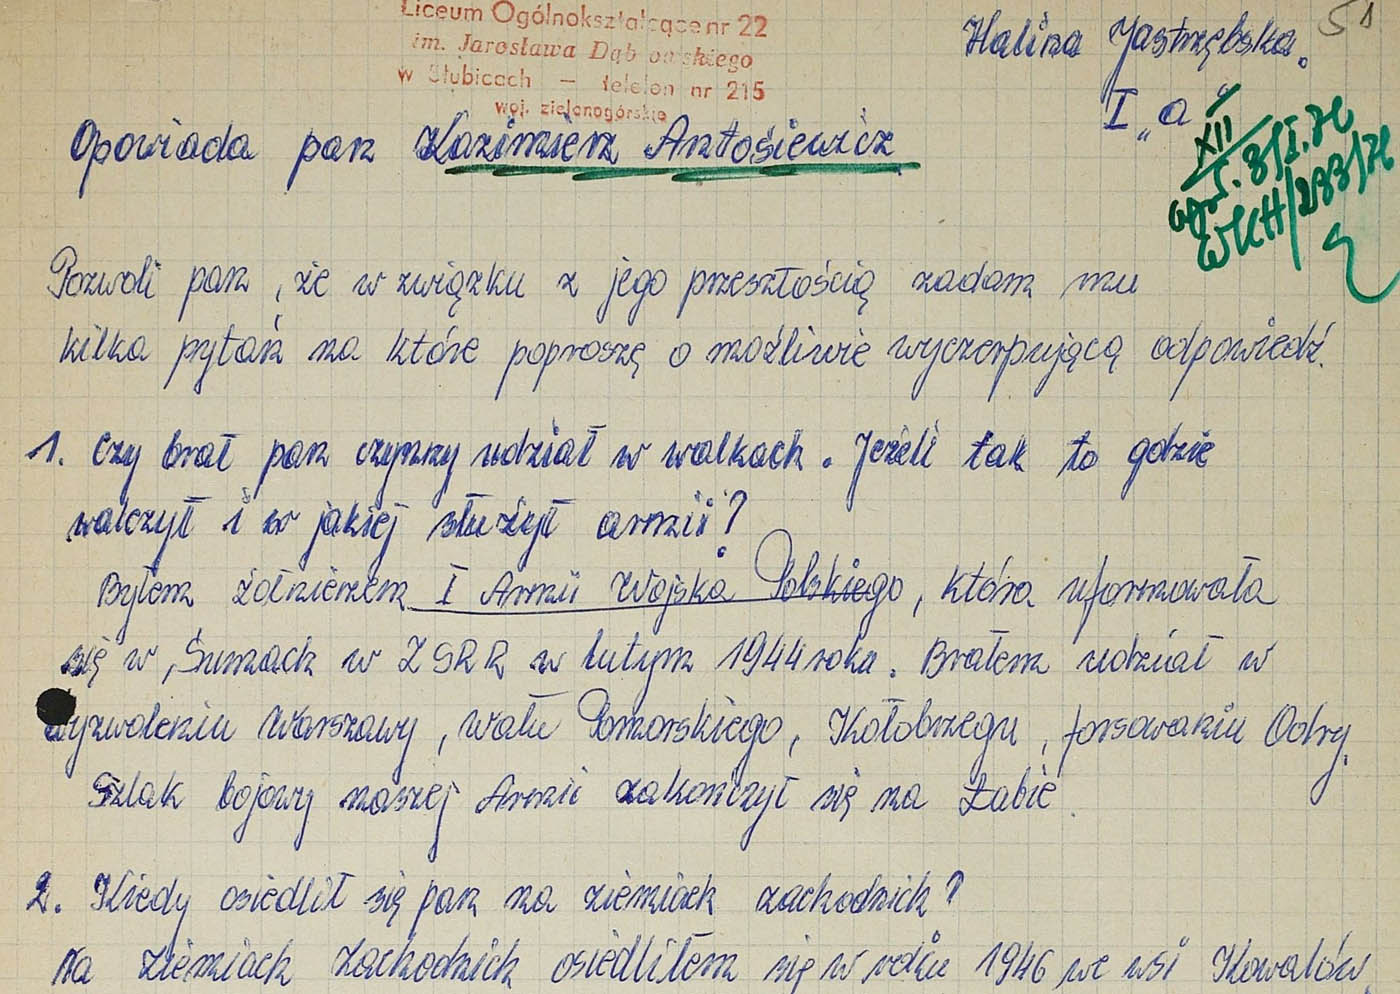 51
Liceum Ogólnokształcące nr 22
im. Jarosława Dąbrowskiego
w Słubicach — telefon nr 215
woj. zielonogórskie
Halina Jastrzębska.
I „a"
XII
WKH/233/72
Opowiada pan Kazimierz Antosiewicz
Pozwoli pan, że w związku z jego przeszłością zadam mu
kilka pytań na które poproszę o możliwie wyczerpującą odpowiedź.
1. Czy brał pan czynny udział w walkach. Jeżeli tak to gdzie
walczył i w jakiej służył armii?
Byłem żołnierzem I Armii Wojska Polskiego, która uformowała
się w Sumach w ZSRR w lutym 1944 roku. Brałem udział w
wyzwoleniu Warszawy, wału Pomorskiego, Kołobrzegu, forsowaniu Odry.
Szlak bojowy naszej Armii zakończył się na Łabie
2. Kiedy osiedlił się pan na ziemiach zachodnich?
Na Ziemiach Zachodnich osiedliłem się w roku 1946 we wsi Kowalów.